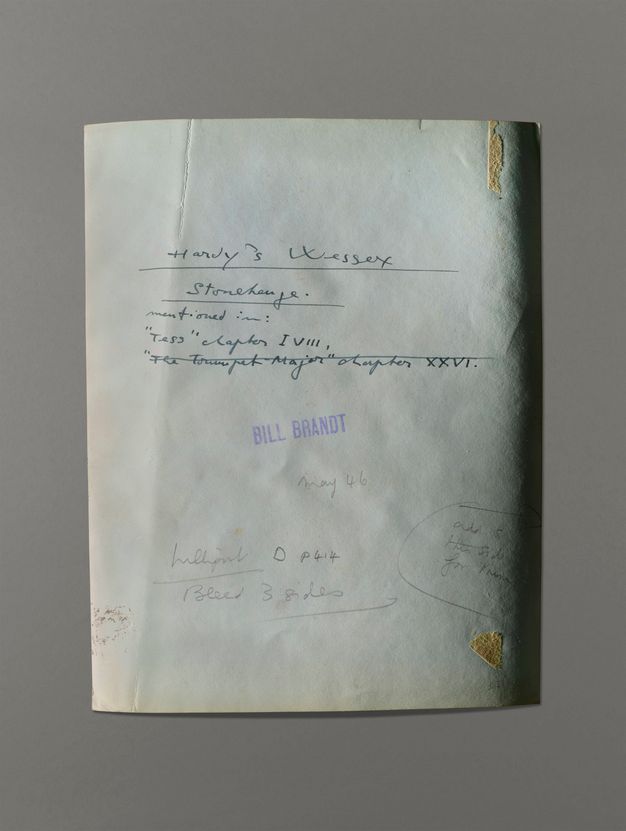 Hardy's Wessex
Stonehenge.
mentioned in:
"Tess" chapter IVIII,
"The Trumpet-Major" chapter XXVI.
BILL BRANDT
May 46
Lilliput D P414
Bleed 3 sides
add
the
for